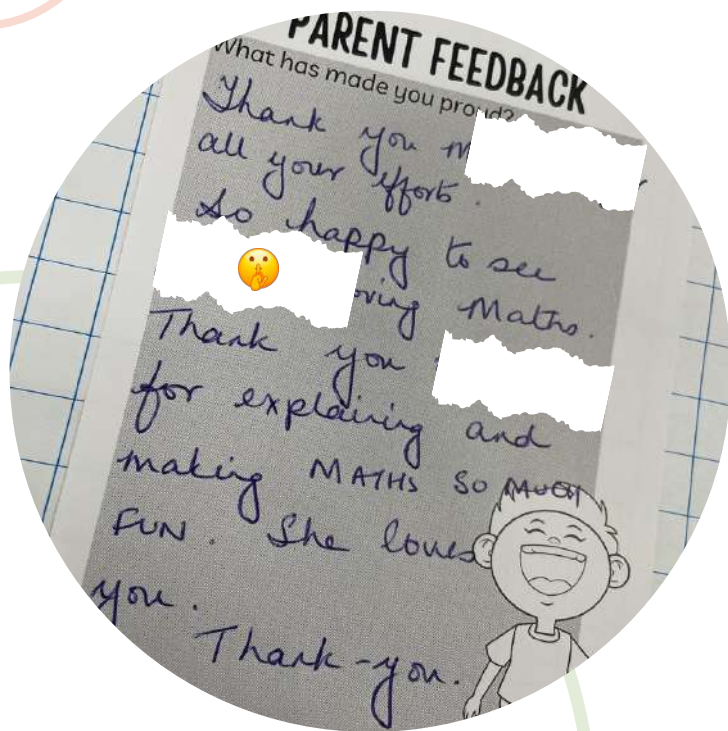 PARENT FEEDBACK
What has made you proud?
Thank you
all your effort.
so happy to see
Maths.
Thank you
for explaining and
making MATHS SO MUCH
FUN. She loves
you.
Thank-you.